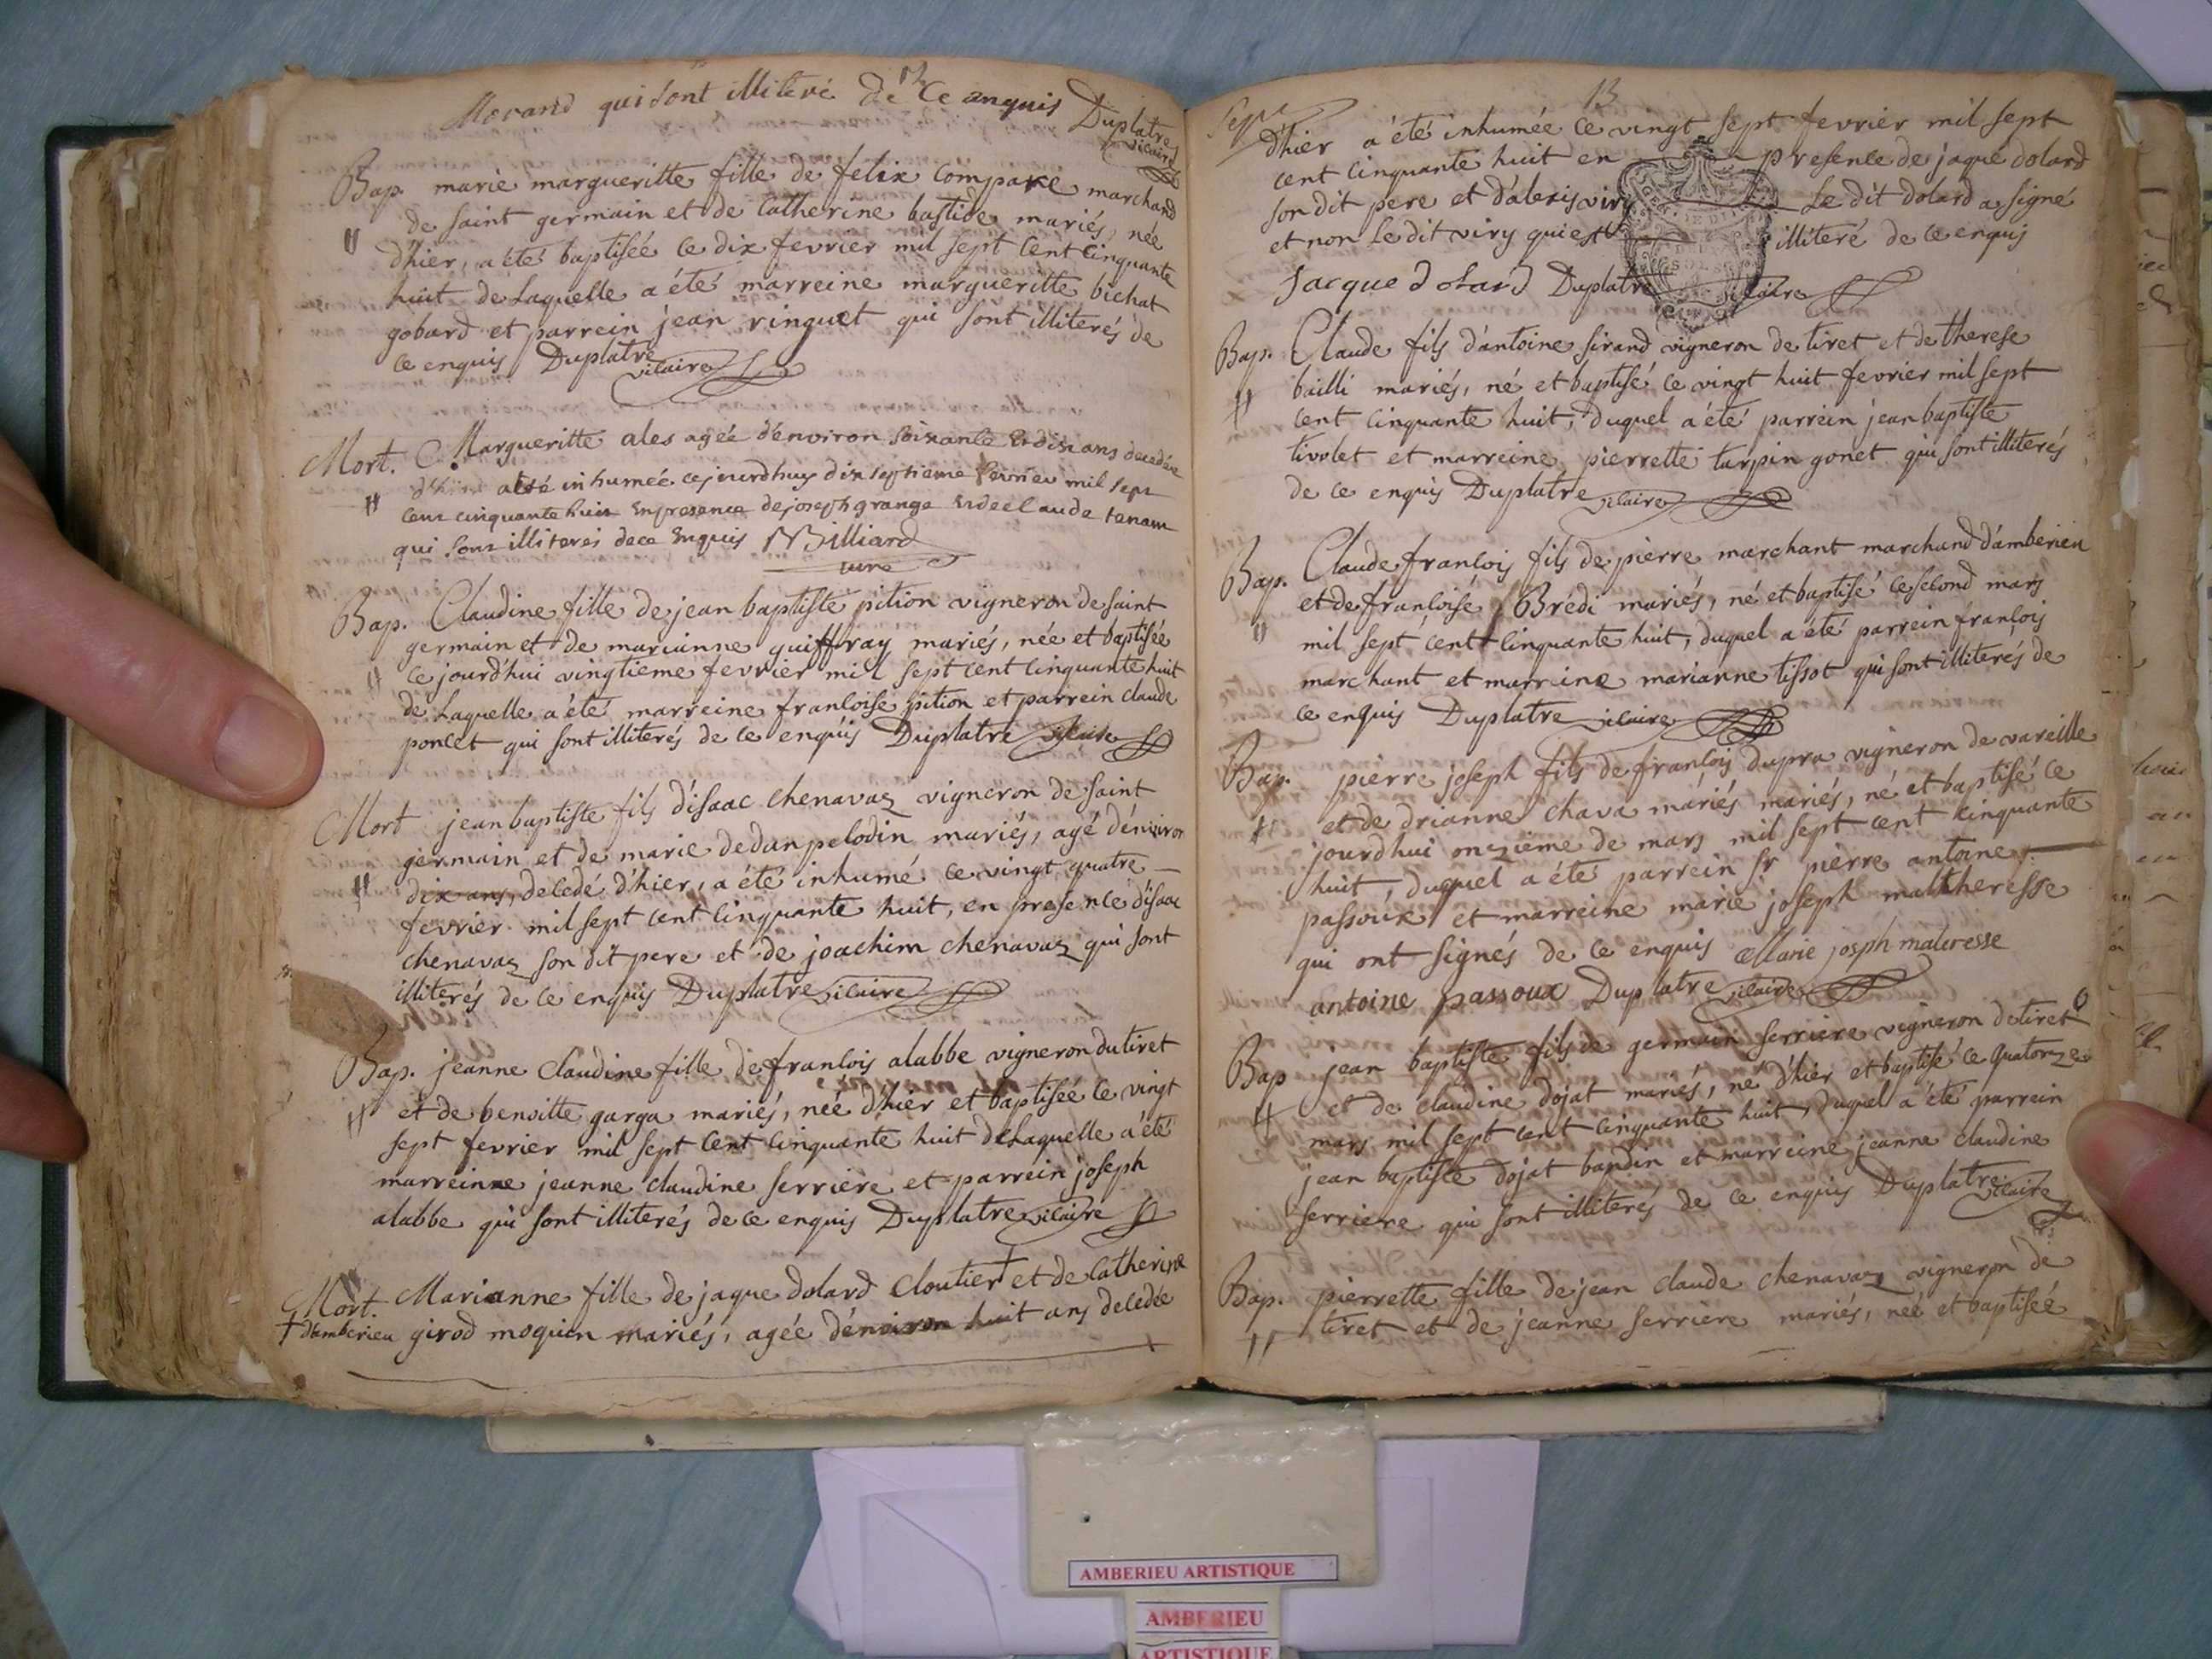 12
Morand qui sont illiteré de ce anquis Duplatre
vicaire
Bap. marie margueritte fille de felix compare marchand
de saint germain et de catherine bastide mariés, née
d'hier, a été baptisée ce dix fevrier mil sept cent cinquante
huit de laquelle a été marreine margueritte bichat
gobard et parrein jean vinguet qui sont illiterés de
ce enquis Duplatre vicaire
Mort. Margueritte ales agée d'environ soixante et dix ans decedée
d'hier a été inhumée cejourdhuy dix septieme fevrier mil sept
cent cinquante huit en presence de joseph grange et de claude tenam
qui sont illiterés de ce enquis Billiard
curé
Bap. Claudine fille de jean baptiste pition vigneron de saint
germain et de marianne guiffray mariés, née et baptisée
ce jourd'hui vingtieme fevrier mil sept cent cinquante huit
de laquelle a été marreine francoise pition et parrein claude
poncet qui sont illiterés de ce enquis Duplatre vicaire
Mort jean baptiste fils d'isaac chenavaz vigneron de saint
germain et de marie dedan pelodin mariés, agé d'environ
dix ans, decedé d'hier, a été inhumé ce vingt quatre
fevrier mil sept cent cinquante huit, en presence d'isaac
chenavaz son dit pere et de joachim chenavaz qui sont
illiterés de ce enquis Duplatre vicaire
Bap. jeanne claudine fille de francois alabbe vigneron du tiret
et de benoitte garga mariés, née d'hier et baptisée ce vingt
sept fevrier mil sept cent cinquante huit de laquelle a été
marreinne jeanne claudine serriere et parrein joseph
alabbe qui sont illiterés de ce enquis Duplatre vicaire
Mort. Marianne fille de jaque dolard cloutier † et de catherine
† d'amberieu girod moquin mariés, agée d'environ huit ans decedée
13
Sept
d'hier a été inhumée ce vingt sept fevrier mil sept
cent cinquante huit en presence de jaque dolard
son dit pere et d'alexis viry le dit dolard a signé
et non le dit viry qui est illiteré de ce enquis
Jacque dolard Duplatre vicaire
Bap. Claude fils d'antoine sirand vigneron de tiret et de therese
bailli mariés, né et baptisé ce vingt huit fevrier mil sept
cent cinquante huit, duquel a été parrein jean baptiste
tivolet et marreine pierrette turpin gonet qui sont illiterés
de ce enquis Duplatre vicaire
Bap. Claude francois fils de pierre marchant marchand d'amberieu
et de francoise Brédi mariés, né et baptisé ce second mars
mil sept cent cinquante huit, duquel a été parrein francois
marchant et marreine marianne tissot qui sont illiterés de
ce enquis Duplatre vicaire
Bap. pierre joseph fils de francois dupra vigneron de vareille
et de drianne chava mariés mariés, né et baptisé ce
jourd'hui onzieme de mars mil sept cent cinquante
huit, duquel a été parrein sr pierre antoine
passoux et marreine marie joseph maltheresse
qui ont signés de ce enquis Marie josph malteresse
antoine passoux Duplatre vicaire
Bap jean baptiste fils de germain serriere vigneron de tiret
et de claudine dojat mariés, né d'hier et baptisé ce quatorze
mars mil sept cent cinquante huit, duquel a été parrein
jean baptiste dojat bandin et marreine jeanne claudine
serriere qui sont illiterés de ce enquis Duplatre vicaire
Bap. pierrette fille de jean claude chenavaz vigneron de
tiret et de jeanne serriere mariés, née et baptisée
AMBERIEU ARTISTIQUE
AMBERIEU
ARTISTIQUE